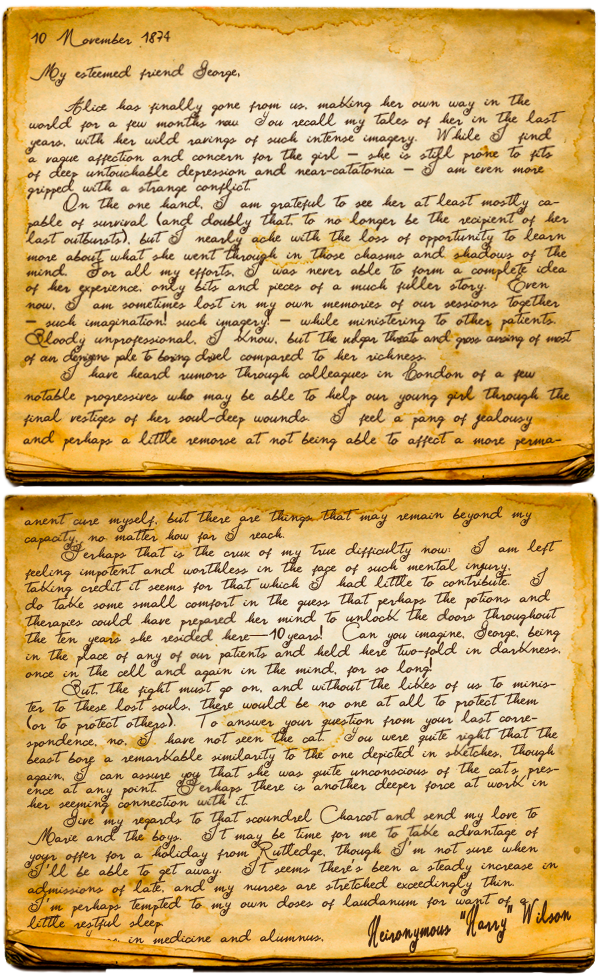 10 November 1874
My esteemed friend George,
Alice has finally gone from us, making her own way in the
world for a few months now. You recall my tales of her in the last
years, with her wild ravings of such intense imagery. While I find
a vague affection and concern for the girl – she is still prone to fits
of deep untouchable depression and near-catatonia – I am even more
gripped with a strange conflict.
On the one hand, I am grateful to see her at least mostly ca-
pable of survival (and doubly that, to no longer be the recipient of her
last outbursts), but I nearly ache with the loss of opportunity to learn
more about what she went through in those chasms and shadows of the
mind. For all my efforts, I was never able to form a complete idea
of her experience; only bits and pieces of a much fuller story. Even
now, I am sometimes lost in my own memories of our sessions together
– such imagination! such imagery! – while ministering to other patients.
Bloody unprofessional, I know, but the vulgar threats and gross arising of most
of our denizens pale to boring drivel compared to her richness.
I have heard rumors through colleagues in London of a few
notable progressives who may be able to help our young girl through the
final vestiges of her soul-deep wounds. I feel a pang of jealousy
and perhaps a little remorse at not being able to affect a more perma-
anent cure myself, but there are things that may remain beyond my
capacity, no matter how far I reach.
Perhaps that is the crux of my true difficulty now: I am left
feeling impotent and worthless in the face of such mental injury,
taking credit it seems for that which I had little to contribute. I
do take some small comfort in the guess that perhaps the potions and
therapies could have prepared her mind to unlock the doors throughout
the ten years she resided here—10 years! Can you imagine, George, being
in the place of any of our patients and held here two-fold in darkness,
once in the cell and again in the mind, for so long!
But, the fight must go on, and without the likes of us to minis-
ter to these lost souls, there would be no one at all to protect them
(or to protect others). To answer your question from your last corre-
spondence, no, I have not seen the cat. You were quite right that the
beast bore a remarkable similarity to the one depicted in sketches, though
again, I can assure you that she was quite unconscious of the cat's pres-
ence at any point. Perhaps there is another deeper force at work in
her seeming connection with it.
Give my regards to that scoundrel Charcot and send my love to
Marie and the boys. It may be time for me to take advantage of
your offer for a holiday from Rutledge, though I'm not sure when
I'll be able to get away. It seems there's been a steady increase in
admissions of late, and my nurses are stretched exceedingly thin.
I'm perhaps tempted to my own doses of laudanum for want of a
little restful sleep.
in medicine and alumnus,
Heironymous "Harry" Wilson